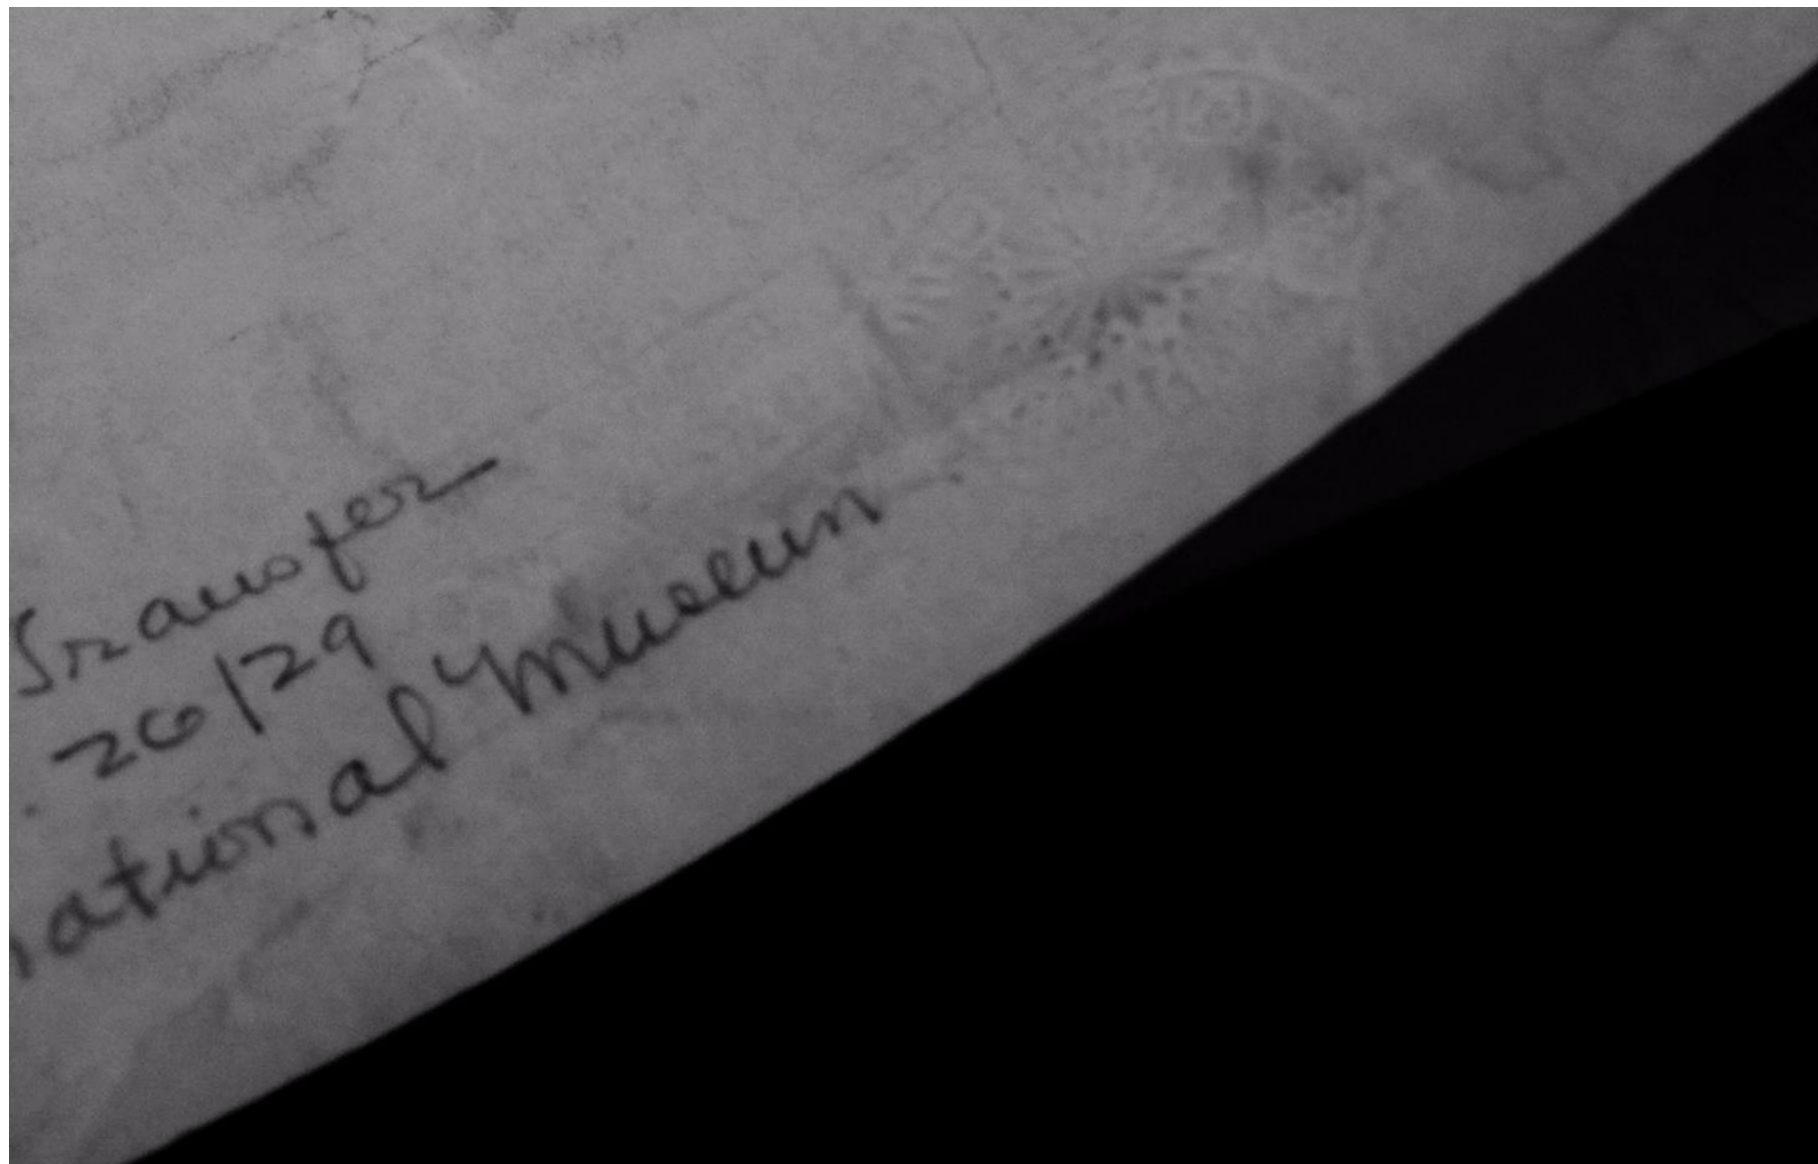 Transfer
. 26/29
ational Museum